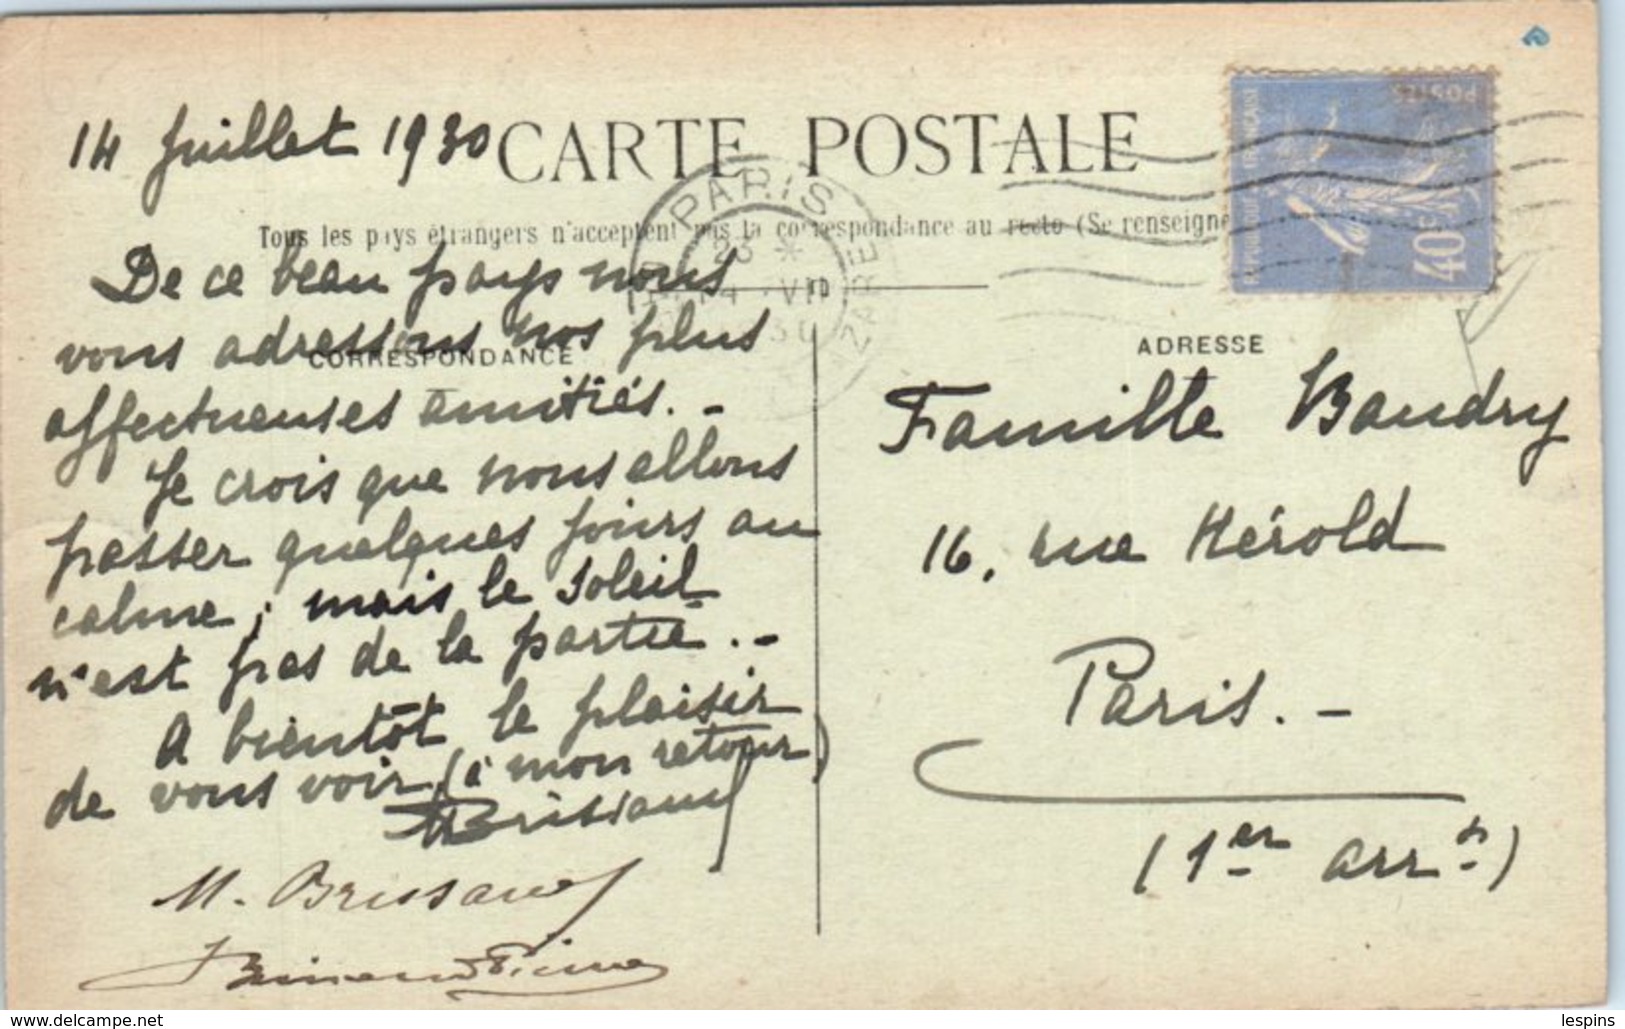 14 Juillet 1930
CARTE POSTALE
Tous les pays étrangers n'acceptent pas la correspondance au recto (Se renseigne
De ce beau pays nous
vous adressons nos plus
CORRESPONDANCE
affectueuses amitiés. -
Je crois que nous allons
passer quelques jours au
calme, mais le soleil
n'est pas de la partie. -
A bientôt le plaisir
de vous voir, (à mon retour)
M.
PARIS
23 *
14 VII
POSTES
RÉPUBLIQUE FRANÇAISE
40c
ADRESSE
Famille Baudry
16, rue Hérold
Paris. -
(1er arrt)
lespins
delcampe.net